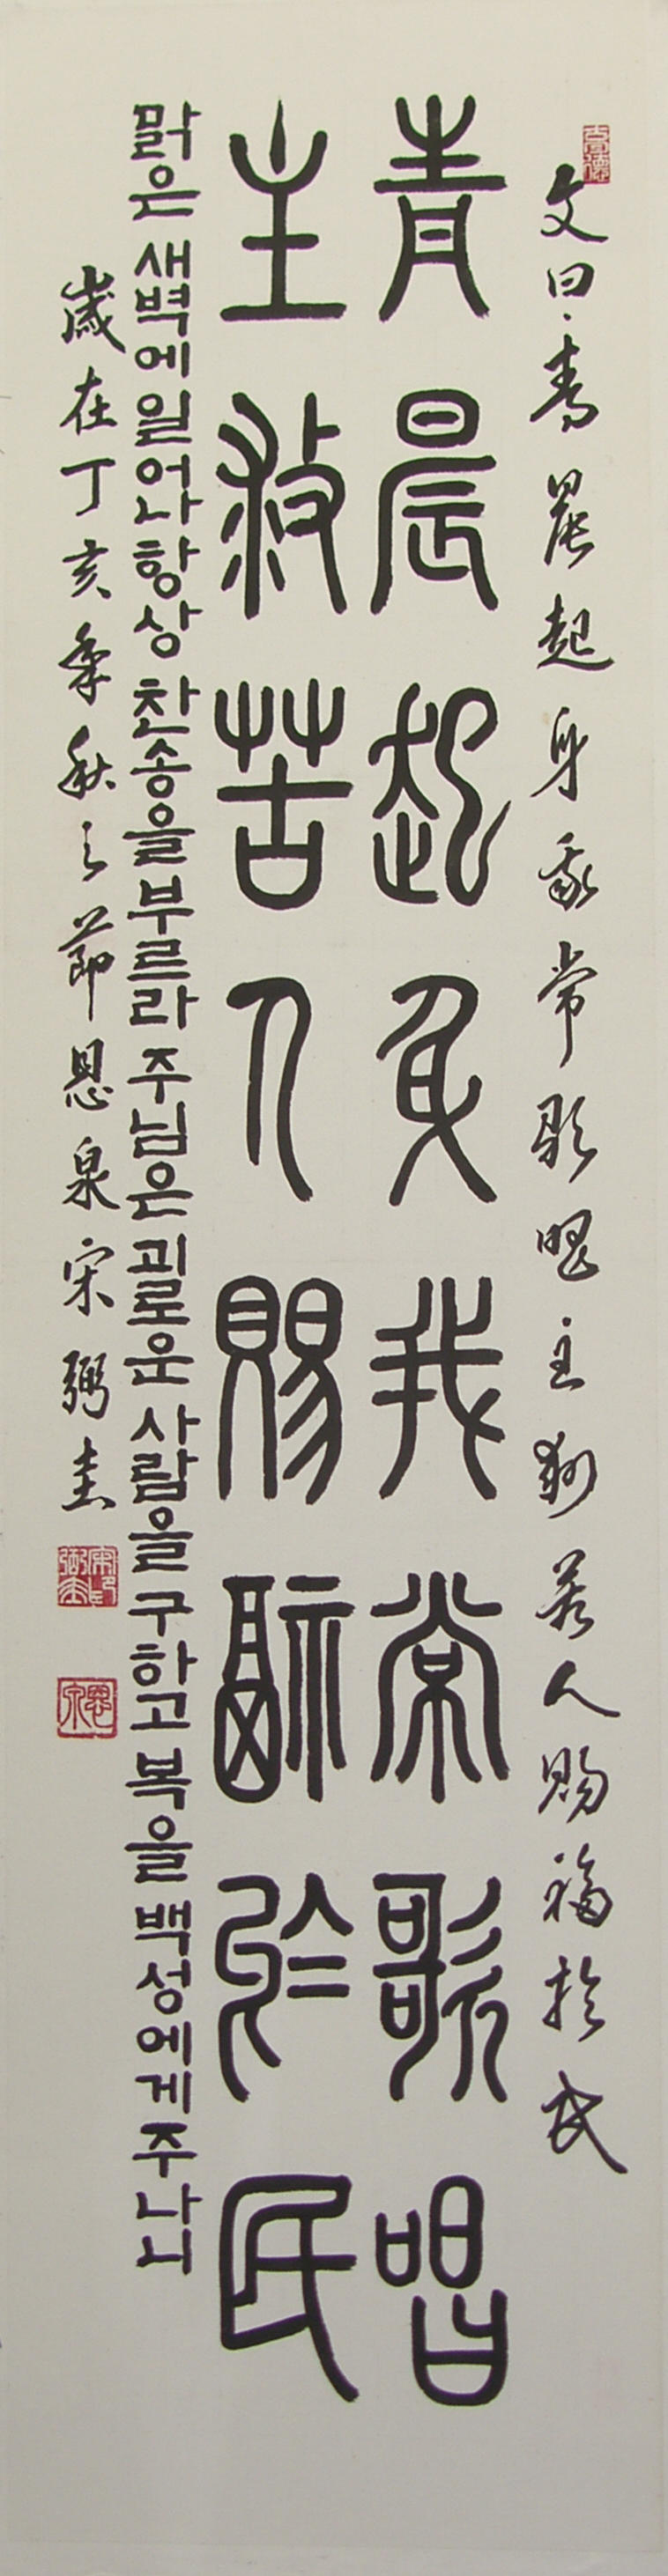 文曰、青晨起身我常歌唱主救苦人賜福於民
青晨起身我常歌唱
主救苦人賜福於民
맑은 새벽에 일어나 항상 찬송을 부르라 주님은 괴로운 사람을 구하고 복을 백성에게 주나니
歲在丁亥年秋之節恩泉宋弼圭
恩泉